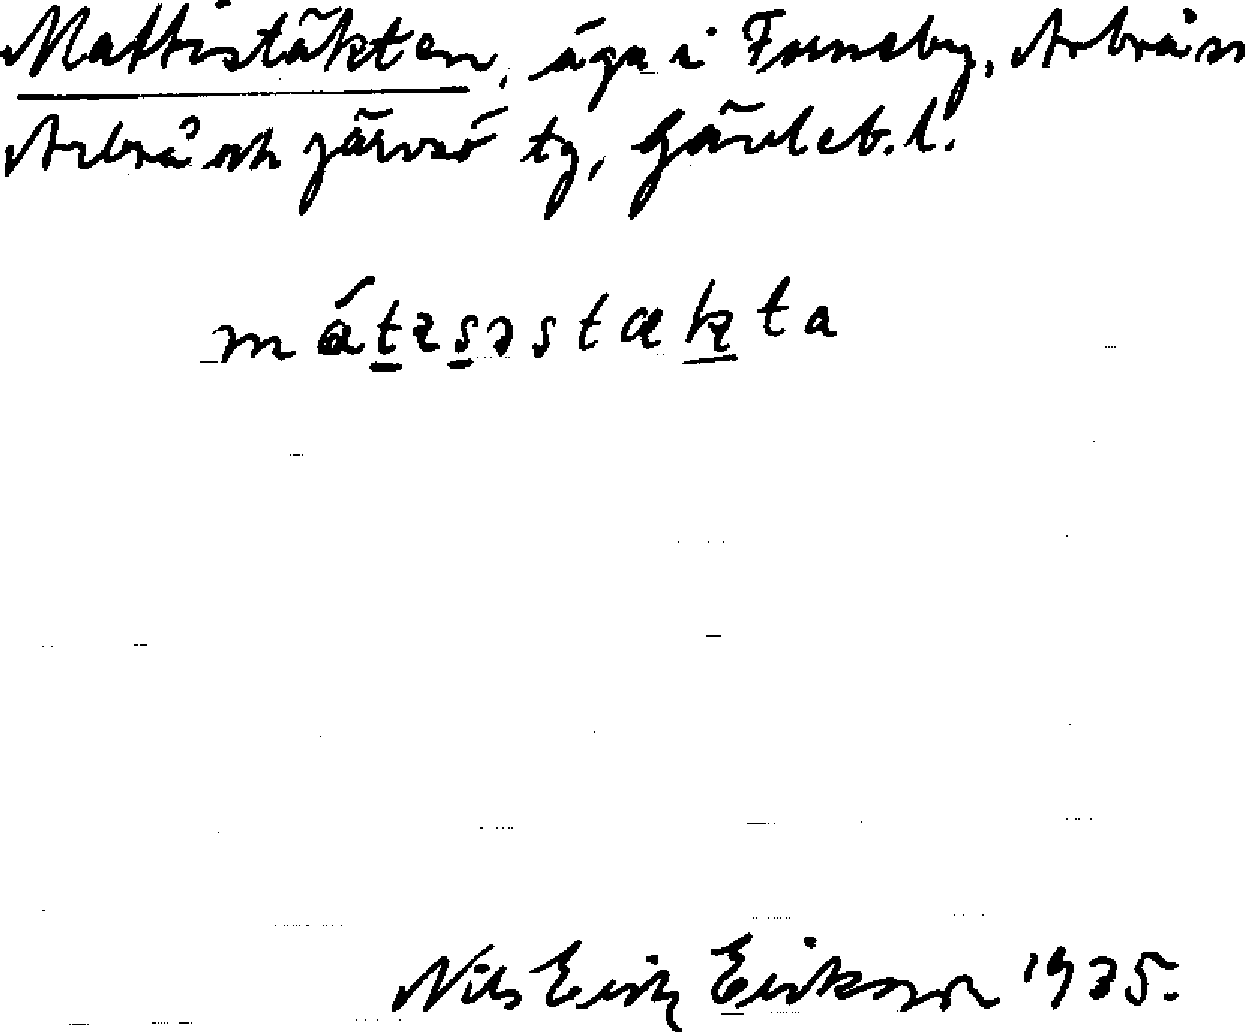 Mattistäkten, äga i Forneby, Arbrå sn
Arbrå och Järvsö tg, Gävleb. l.
mátɪsəstækta
Nils Erik Erikson 1935.